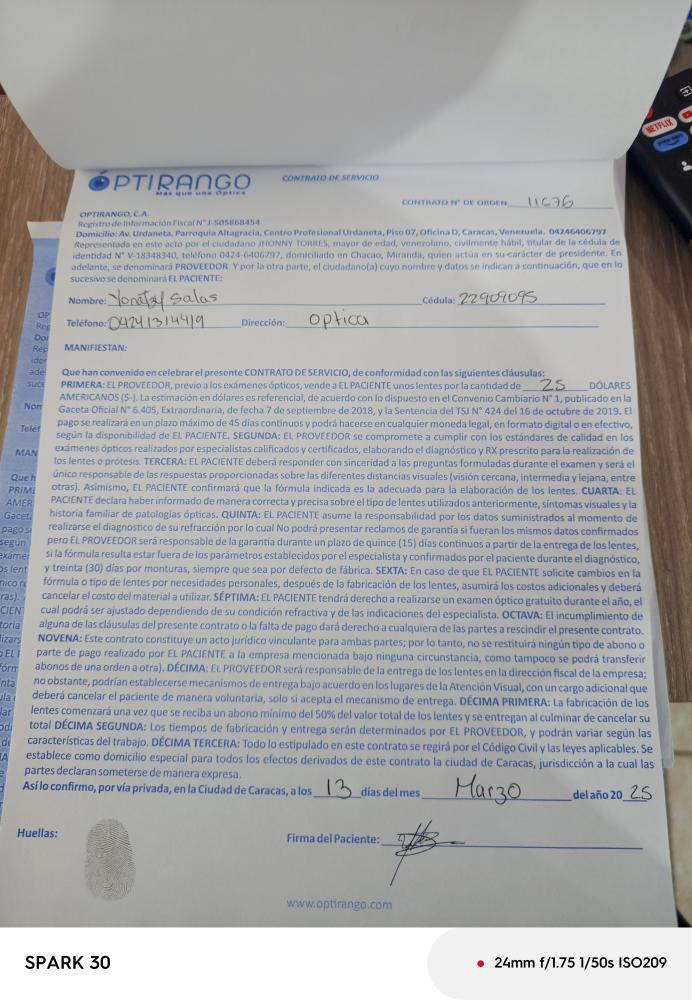 OPTIRANGO
Más que una Óptica
CONTRATO DE SERVICIO
CONTRATO N° DE ORDEN 11676
OPTIRANGO, C.A.
Registro de Información Fiscal N° J-505868454
Domicilio: Av. Urdaneta, Parroquia Altagracia, Centro Profesional Urdaneta, Piso 07, Oficina D, Caracas, Venezuela. 04246406797
Representada en este acto por el ciudadano JHONNY TORRES, mayor de edad, venezolano, civilmente hábil, titular de la cédula de
identidad N° V-18348340, teléfono 0424-6406797, domiciliado en Chacao, Miranda, quien actúa en su carácter de presidente. En
adelante, se denominará PROVEEDOR. Y por la otra parte, el ciudadano(a) cuyo nombre y datos se indican a continuación, que en lo
sucesivo se denominará EL PACIENTE:
Nombre: Salas Cédula: 22909095
Teléfono: 04241314419 Dirección: optica
MANIFIESTAN:
Que han convenido en celebrar el presente CONTRATO DE SERVICIO, de conformidad con las siguientes cláusulas:
PRIMERA: EL PROVEEDOR, previo a los exámenes ópticos, vende a EL PACIENTE unos lentes por la cantidad de 25 DÓLARES
AMERICANOS ($-). La estimación en dólares es referencial, de acuerdo con lo dispuesto en el Convenio Cambiario N° 1, publicado en la
Gaceta Oficial N° 6.405, Extraordinaria, de fecha 7 de septiembre de 2018, y la Sentencia del TSJ N° 424 del 16 de octubre de 2019. El
pago se realizará en un plazo máximo de 45 días continuos y podrá hacerse en cualquier moneda legal, en formato digital o en efectivo,
según la disponibilidad de EL PACIENTE. SEGUNDA: EL PROVEEDOR se compromete a cumplir con los estándares de calidad en los
exámenes ópticos realizados por especialistas calificados y certificados, elaborando el diagnóstico y RX prescrito para la realización de
los lentes o prótesis. TERCERA: EL PACIENTE deberá responder con sinceridad a las preguntas formuladas durante el examen y será el
único responsable de las respuestas proporcionadas sobre las diferentes distancias visuales (visión cercana, intermedia y lejana, entre
otras). Asimismo, EL PACIENTE confirmará que la fórmula indicada es la adecuada para la elaboración de los lentes. CUARTA: EL
PACIENTE declara haber informado de manera correcta y precisa sobre el tipo de lentes utilizados anteriormente, síntomas visuales y la
historia familiar de patologías ópticas. QUINTA: EL PACIENTE asume la responsabilidad por los datos suministrados al momento de
realizarse el diagnostico de su refracción por lo cual No podrá presentar reclamos de garantía si fueran los mismos datos confirmados
pero EL PROVEEDOR será responsable de la garantía durante un plazo de quince (15) días continuos a partir de la entrega de los lentes,
si la fórmula resulta estar fuera de los parámetros establecidos por el especialista y confirmados por el paciente durante el diagnóstico,
y treinta (30) días por monturas, siempre que sea por defecto de fábrica. SEXTA: En caso de que EL PACIENTE solicite cambios en la
fórmula o tipo de lentes por necesidades personales, después de la fabricación de los lentes, asumirá los costos adicionales y deberá
cancelar el costo del material a utilizar. SÉPTIMA: EL PACIENTE tendrá derecho a realizarse un examen óptico gratuito durante el año, el
cual podrá ser ajustado dependiendo de su condición refractiva y de las indicaciones del especialista. OCTAVA: El incumplimiento de
alguna de las cláusulas del presente contrato o la falta de pago dará derecho a cualquiera de las partes a rescindir el presente contrato.
NOVENA: Este contrato constituye un acto jurídico vinculante para ambas partes; por lo tanto, no se restituirá ningún tipo de abono o
parte de pago realizado por EL PACIENTE a la empresa mencionada bajo ninguna circunstancia, como tampoco se podrá transferir
abonos de una orden a otra). DÉCIMA: EL PROVEEDOR será responsable de la entrega de los lentes en la dirección fiscal de la empresa;
no obstante, podrían establecerse mecanismos de entrega bajo acuerdo en los lugares de la Atención Visual, con un cargo adicional que
deberá cancelar el paciente de manera voluntaria, solo si acepta el mecanismo de entrega. DÉCIMA PRIMERA: La fabricación de los
lentes comenzará una vez que se reciba un abono mínimo del 50% del valor total de los lentes y se entregan al culminar de cancelar su
total DÉCIMA SEGUNDA: Los tiempos de fabricación y entrega serán determinados por EL PROVEEDOR, y podrán variar según las
características del trabajo. DÉCIMA TERCERA: Todo lo estipulado en este contrato se regirá por el Código Civil y las leyes aplicables. Se
establece como domicilio especial para todos los efectos derivados de este contrato la ciudad de Caracas, jurisdicción a la cual las
partes declaran someterse de manera expresa.
Así lo confirmo, por vía privada, en la Ciudad de Caracas, a los 13 días del mes Marzo del año 20 25
Huellas:
Firma del Paciente:
www.optirango.com
NETFLIX
SPARK 30
24mm f/1.75 1/50s ISO209